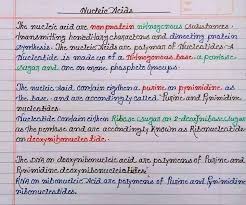 Nucleic Acids
The nucleic acid are non protein nitrogenous substances
transmitting hereditary characters and directing protein
synthesis. The nucleic Acids are polymer of Nucleotides. A
Nucleotide is made up of a nitrogenous base a pentose
sugar and one or more phosphate groups
The nucleic Acid contain eighten a purine or pyrimidine as
the base and are accordingly called Purine and Pyrimidine
nucleotides
Nucleotide contain eithen Ribose sugar or 2-deoxyribose sugar
as the pentose and are accordingly known as Ribonucleotide
or deoxyribonucleotide.
The DNA or deoxyribonucleic acid are polymers of Purine and
Pyrimidine deoxyribonucleotides
RNA or ribonucleic Acid are polymers of Purine and Pyrimidine
ribonucleotides.